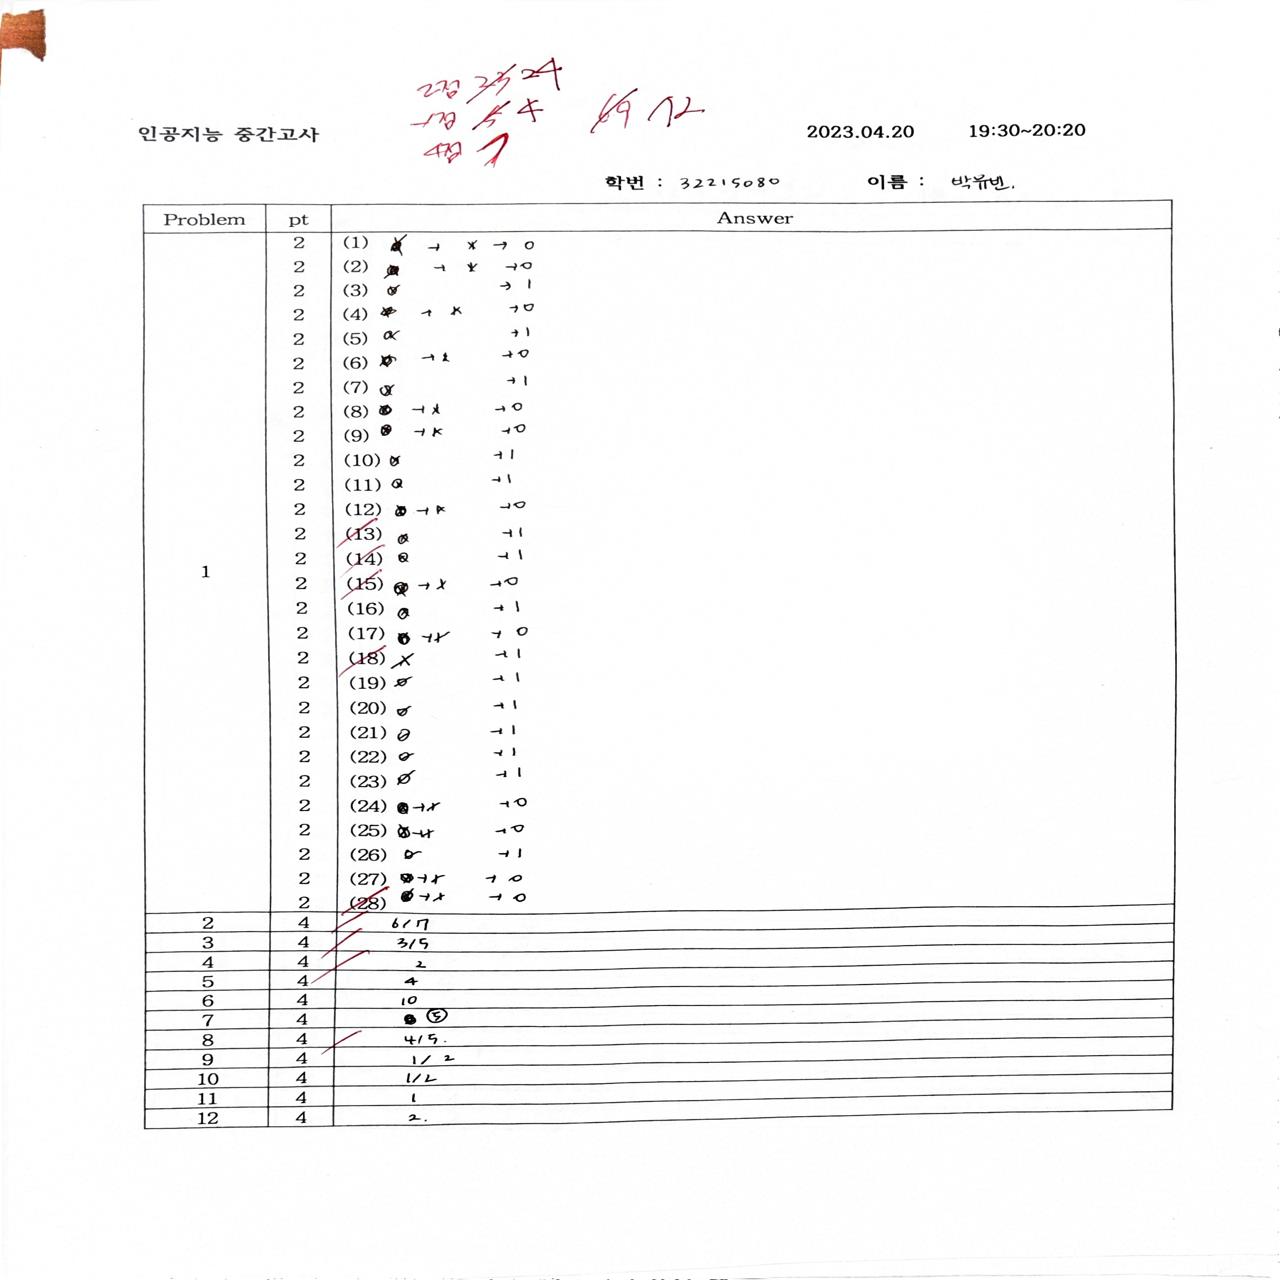 2점 23 24
4점 5 4
69 72
인공지능 중간고사
2023.04.20 19:30~20:20
학번 : 32215080 이름 : 박유빈.
Problem pt Answer
1
2 (1) → x → 0
2 (2) → x → 0
2 (3) o → 1
2 (4) → x → 0
2 (5) o → 1
2 (6) → x → 0
2 (7) o → 1
2 (8) → x → 0
2 (9) → x → 0
2 (10) o → 1
2 (11) o → 1
2 (12) → x → 0
2 (13) o → 1
2 (14) o → 1
2 (15) → x → 0
2 (16) o → 1
2 (17) → x → 0
2 (18) x → 1
2 (19) o → 1
2 (20) o → 1
2 (21) o → 1
2 (22) o → 1
2 (23) o → 1
2 (24) → x → 0
2 (25) → x → 0
2 (26) o → 1
2 (27) → x → 0
2 (28) → x → 0
2 4 6/7
3 4 3/5
4 4 2
5 4 4
6 4 10
7 4 ⑤
8 4 4/5.
9 4 1/2
10 4 1/2
11 4 1
12 4 2.